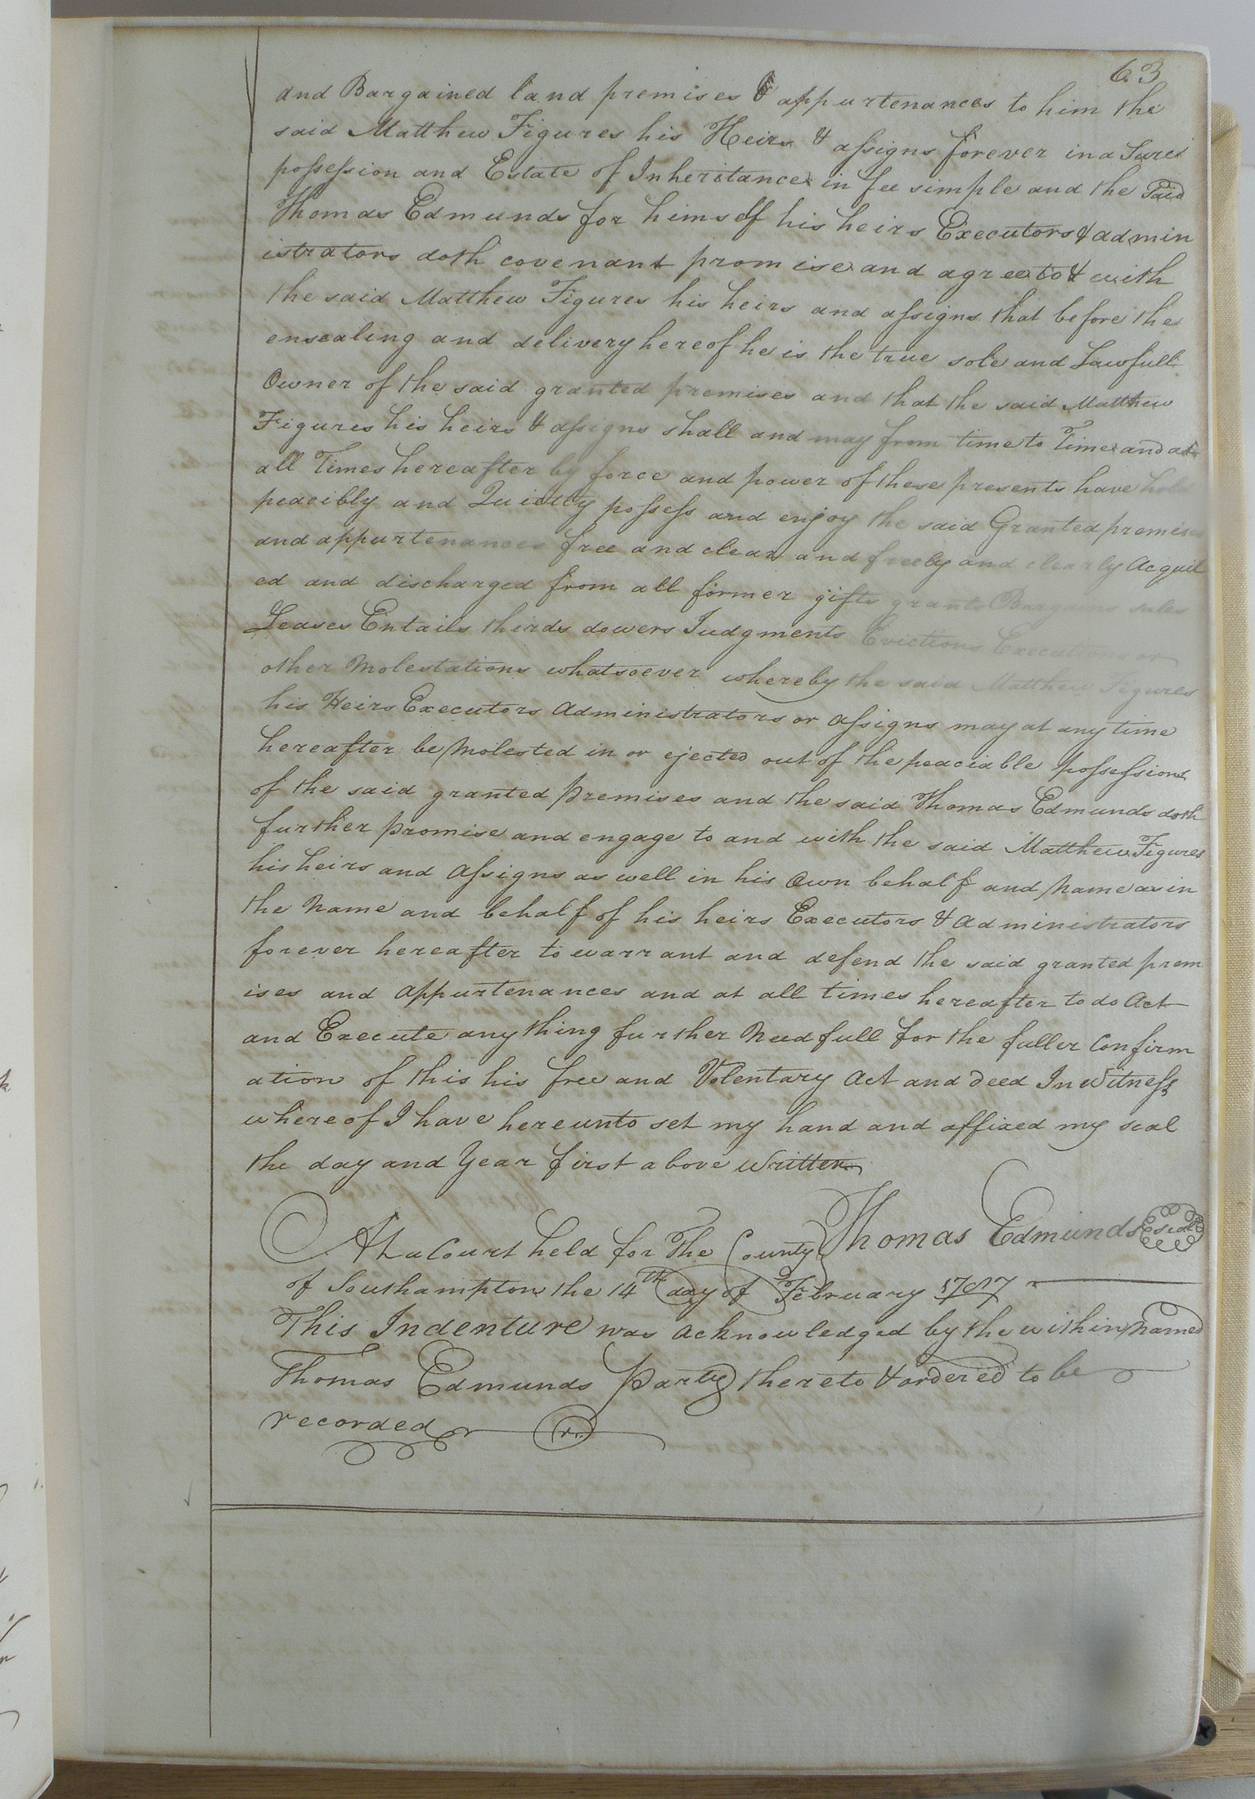 63
and Bargained land premises & appurtenances to him the
said Matthew Figures his Heirs & assigns forever in a Sure
possession and Estate of Inheritance in fee simple and the Said
Thomas Edmunds for himself his heirs Executors & admin
istrators doth covenant promise and agree to & with
the said Matthew Figures his heirs and assigns that before the
ensealing and delivery hereof he is the true sole and Lawfull
Owner of the said granted premises and that the said Matthew
Figures his heirs & assigns shall and may from time to Time and at
all Times hereafter by force and power of these presents have hold
peacibly and Quietly possess and enjoy the said Granted premises
and appurtenances free and clear and freely and clearly Acquit
ed and discharged from all former gifts grants Bargains sales
Leases Entails thirds dowers Judgments Evictions Executions or
other Molestations whatsoever whereby the said Matthew Figures
his Heirs Executors Administrators or Assigns may at any time
hereafter be Molested in or ejected out of the peaciable possession
of the said granted Premises and the said Thomas Edmunds doth
further Promise and engage to and with the said Matthew Figures
his heirs and Assigns as well in his Own behalf and Name as in
the Name and behalf of his heirs Executors & Administrators
forever hereafter to warrant and defend the said granted prem
ises and Appurtenances and at all times hereafter to do Act
and Execute any thing further Needfull for the fuller Confirm
ation of this his free and Volentary Act and Deed In Witness
whereof I have hereunto set my hand and affixed my seal
the day and Year first above Written
Thomas Edmunds seal
At a Court held for The County
of Southampton the 14th day of February 1787
This Indenture was acknowledged by the within Named
Thomas Edmunds Party thereto & ordered to be
recorded